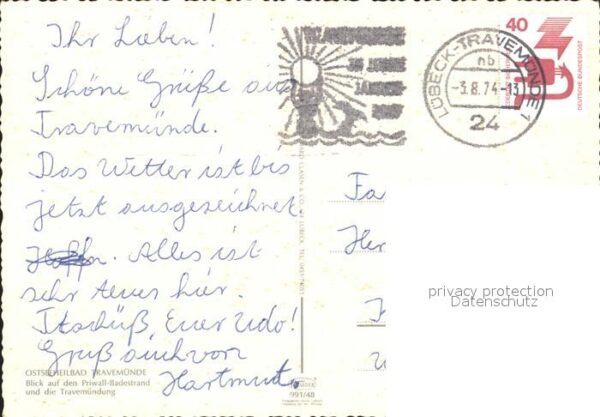 Ihr Lieben!
Schöne Grüße aus
Travemünde.
Das Wetter ist bis
jetzt ausgezeichnet
Alles ist
sehr teuer hier.
Tschüß, Euer Udo!
Gruß auch von
Hartmut
OSTSEEHEILBAD TRAVEMÜNDE
Blick auf den Priwall-Badestrand
und die Travemündung
991/48
40
DEUTSCHE BUNDESPOST
LÜBECK-TRAVEMÜNDE 1
nb
-3.8.74-13
24
Fa
Her
privacy protection
Datenschutz